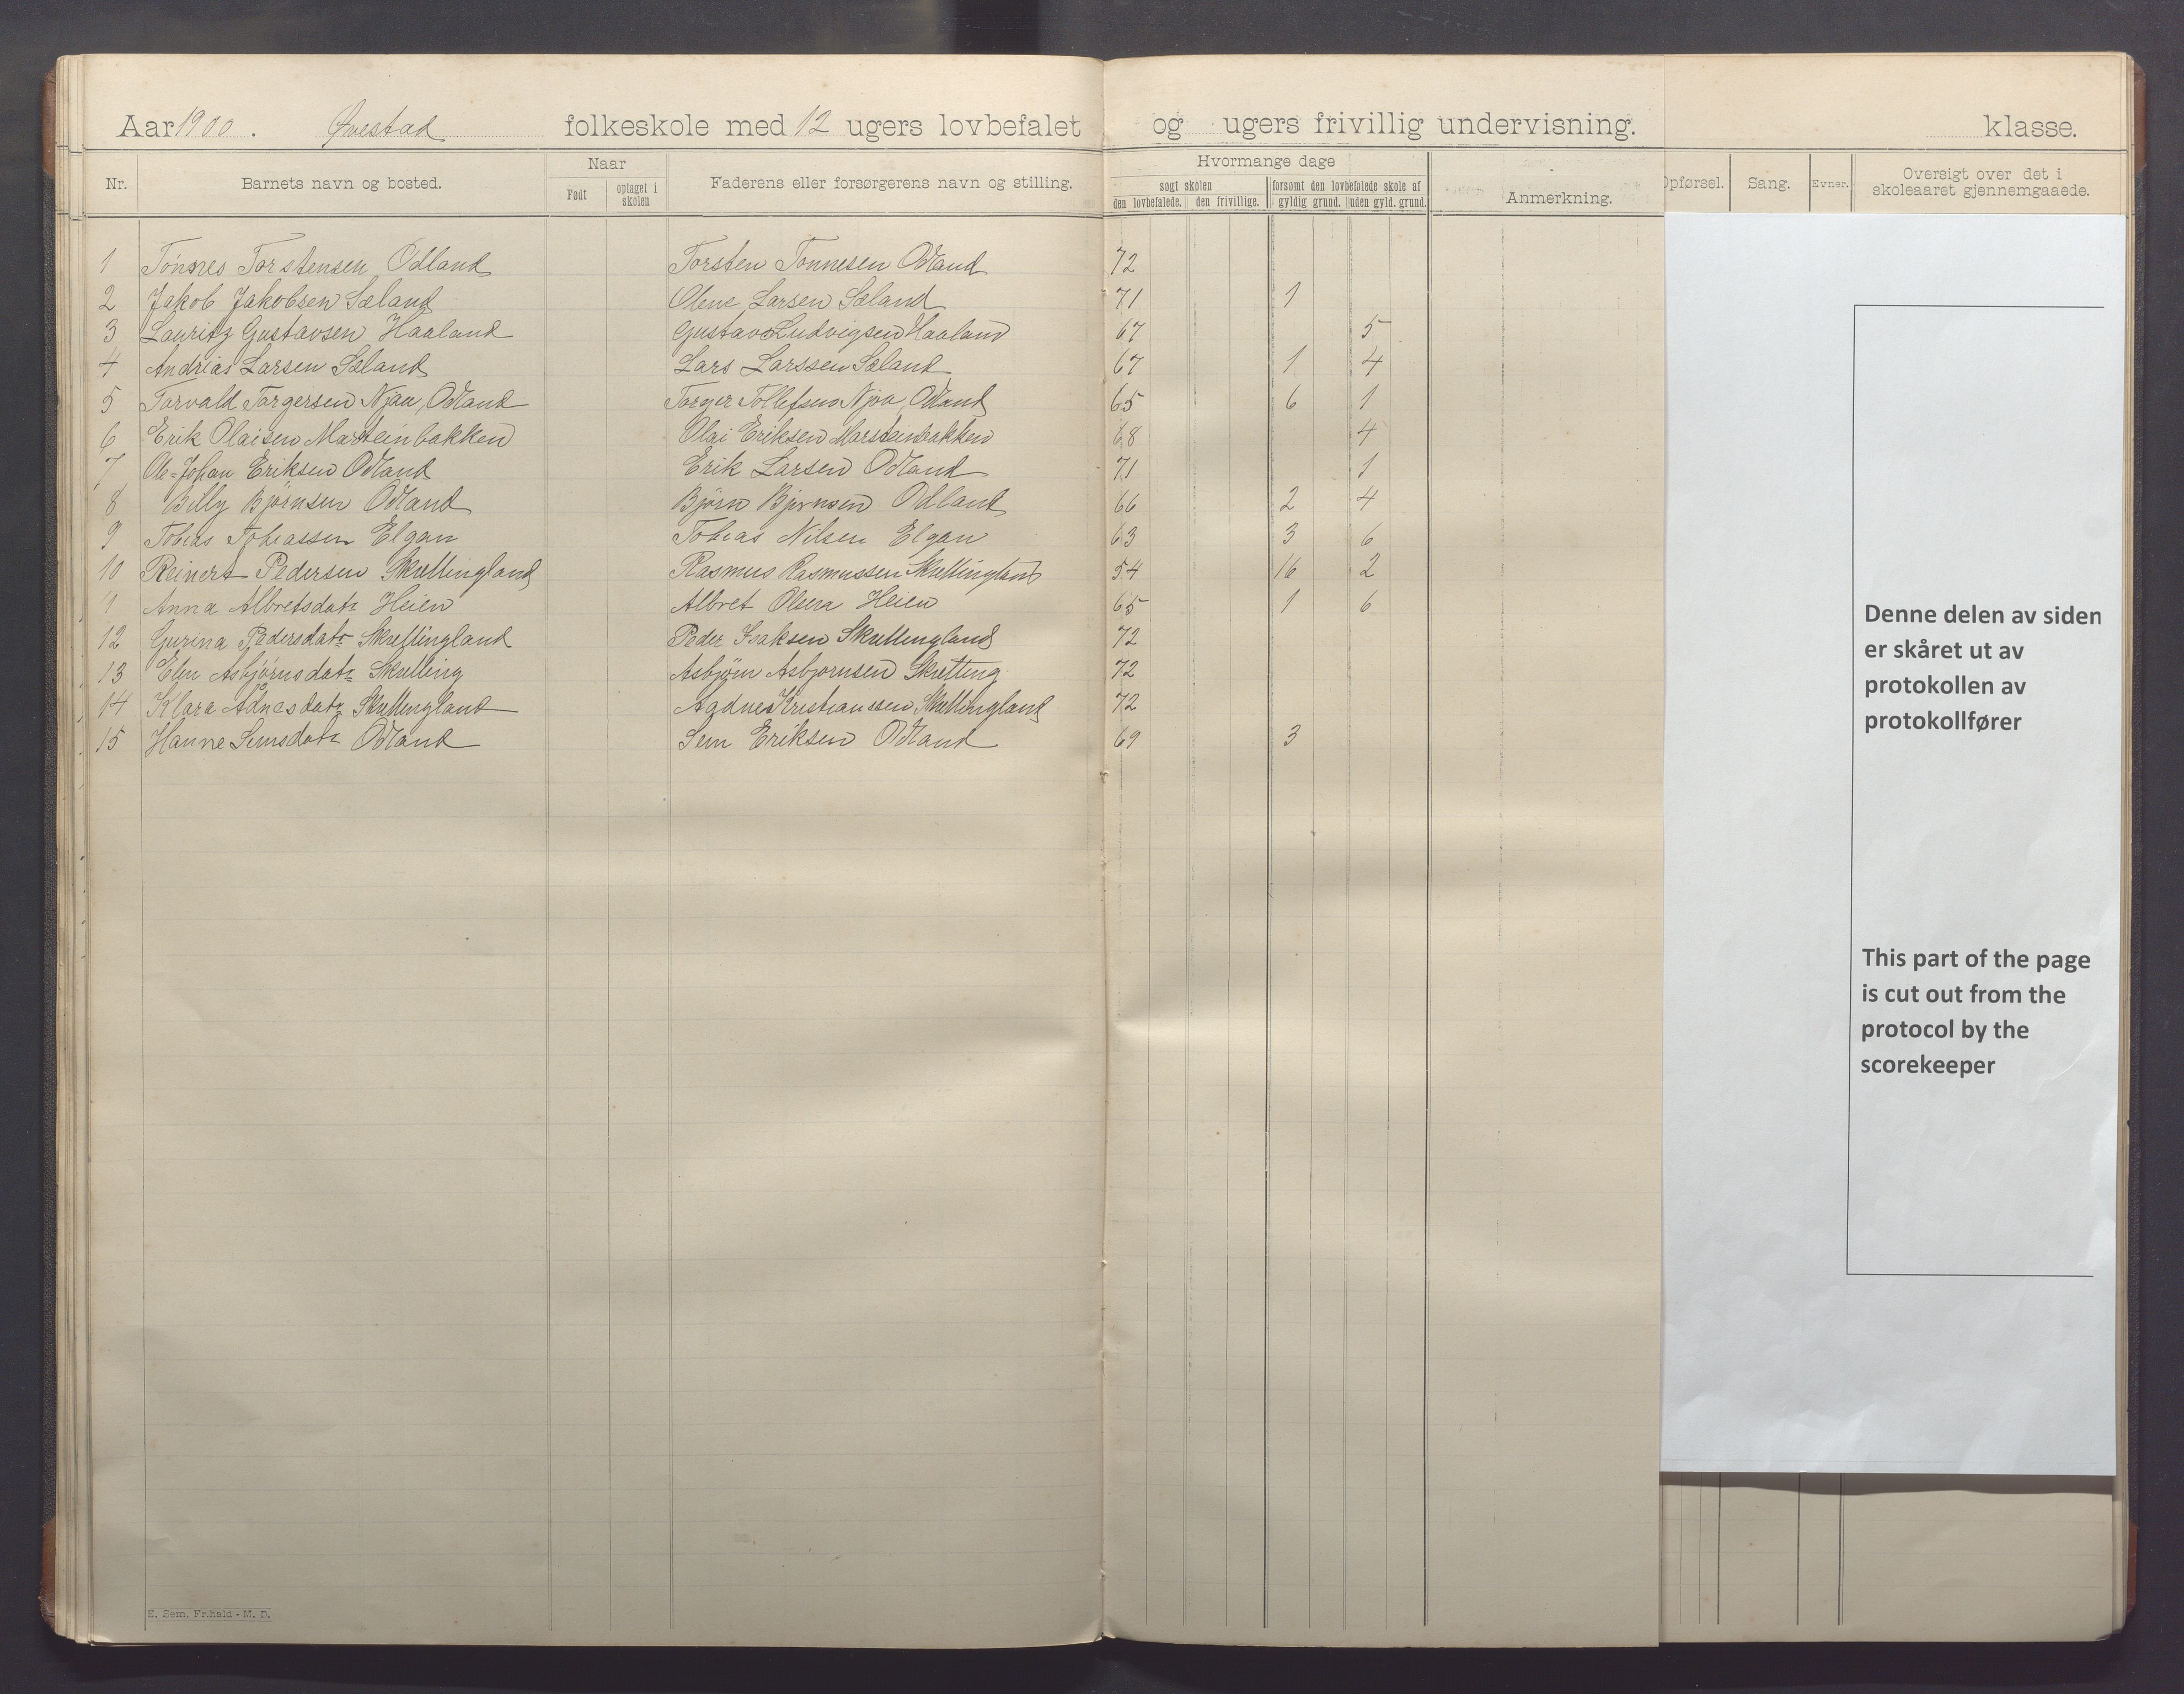 Aar 1900. Øvestad folkeskole med 12 ugers lovbefalet og ugers frivillig undervisning. klasse.
Nr. Barnets navn og bosted. Naar Født optaget i skolen Faderens eller forsørgerens navn og stilling. Hvormange dage søgt skolen den lovbefalede. den frivillige. forsømt den lovbefalede skole af gyldig grund. uden gyld. grund. Anmerkning. Opførsel. Sang. Evner. Oversigt over det i skoleaaret gjennemgaaede.
1 Tönnes Torstensen Odland Torsten Tonnesen Odland 72
2 Jakob Jakobsen Sæland Olene Larsen Sæland 71 1
3 Lauritz Gustavsen Haaland Gustav Ludvigsen Haaland 67 5
4 Andrias Larsen Sæland Lars Larssen Sæland 67 1 4
5 Torvald Torgersen Njaa, Odland Torger Tollefsen Njaa, Odland 65 6 1
6 Erik Olaisen Marsteinbakken Olai Eriksen Marsteinbakken 68 4
7 Ole-Johan Eriksen Odland Erik Larsen Odland 71 1
8 Billy Bjørnsen Odland Bjørn Bjørnsen Odland 66 2 4
9 Tobias Tobiassen Elgan Tobias Nilsen Elgan 63 3 6
10 Reinert Pedersen Skretlingland Rasmus Rasmussen Skretlingland 54 16 2
11 Anna Albretsdatr Heien Albret Olsen Heien 65 1 6
12 Gurina Pedersdatr Skretlingland Peder Isaksen Skretlingland 72
13 Elen Asbjörnsdatr Skretling Asbjørn Asbjornsen Skretting 72
14 Klara Ådnesdatr Skretlingland Aadnes Kristianssen, Skretlingland 72
15 Hanne Semsdatr Odland Sem Eriksen Odland 69 3
Denne delen av siden
er skåret ut av
protokollen av
protokollfører
This part of the page
is cut out from the
protocol by the
scorekeeper
E. Sem. Fr.hald - M. D.